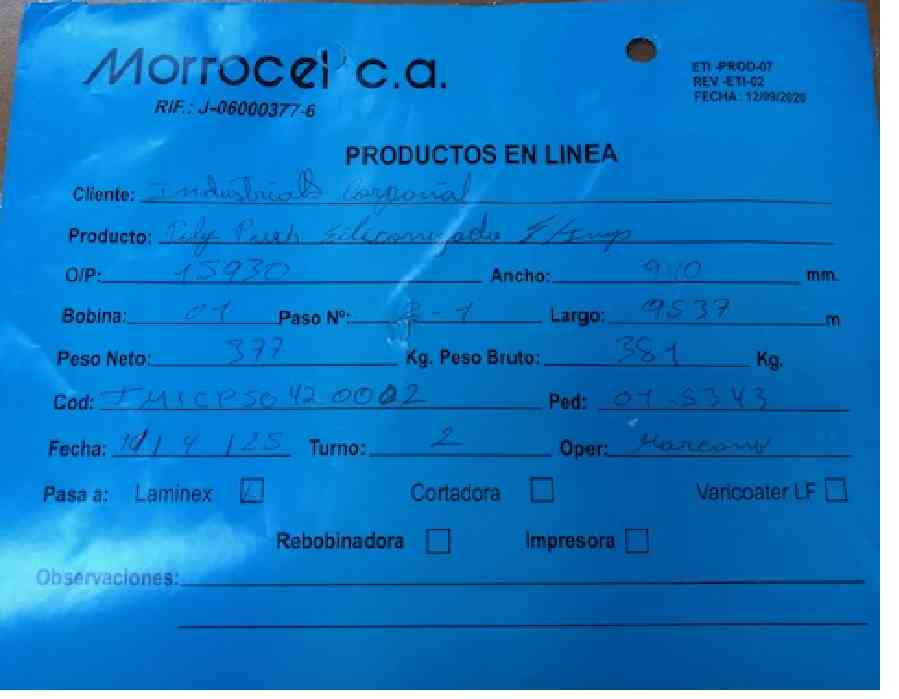 Morrocel c.a.
RIF.: J-06000377-6
ETI -PROD-07
REV -ETI-02
FECHA: 12/09/2020
PRODUCTOS EN LINEA
Cliente: Industrials
Producto: Siliconizado S/Imp
O/P: 15930 Ancho: 940 mm.
Bobina: 01 Paso Nº: - 1 Largo: 9537 m
Peso Neto: 377 Kg. Peso Bruto: 381 Kg.
Cod: Ped: 01-5343
Fecha: 10/4/25 Turno: 2 Oper: Marcano
Pasa a: Laminex Cortadora Varicoater LF
Rebobinadora Impresora
Observaciones: